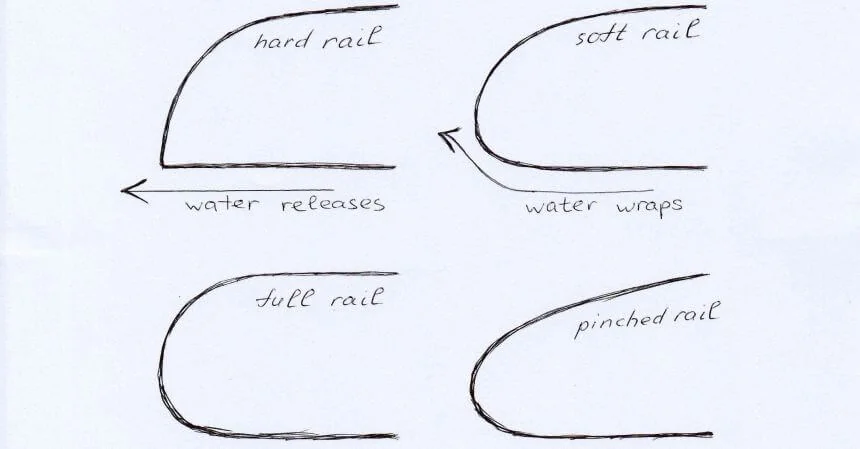 hard rail
soft rail
water releases
water wraps
full rail
pinched rail